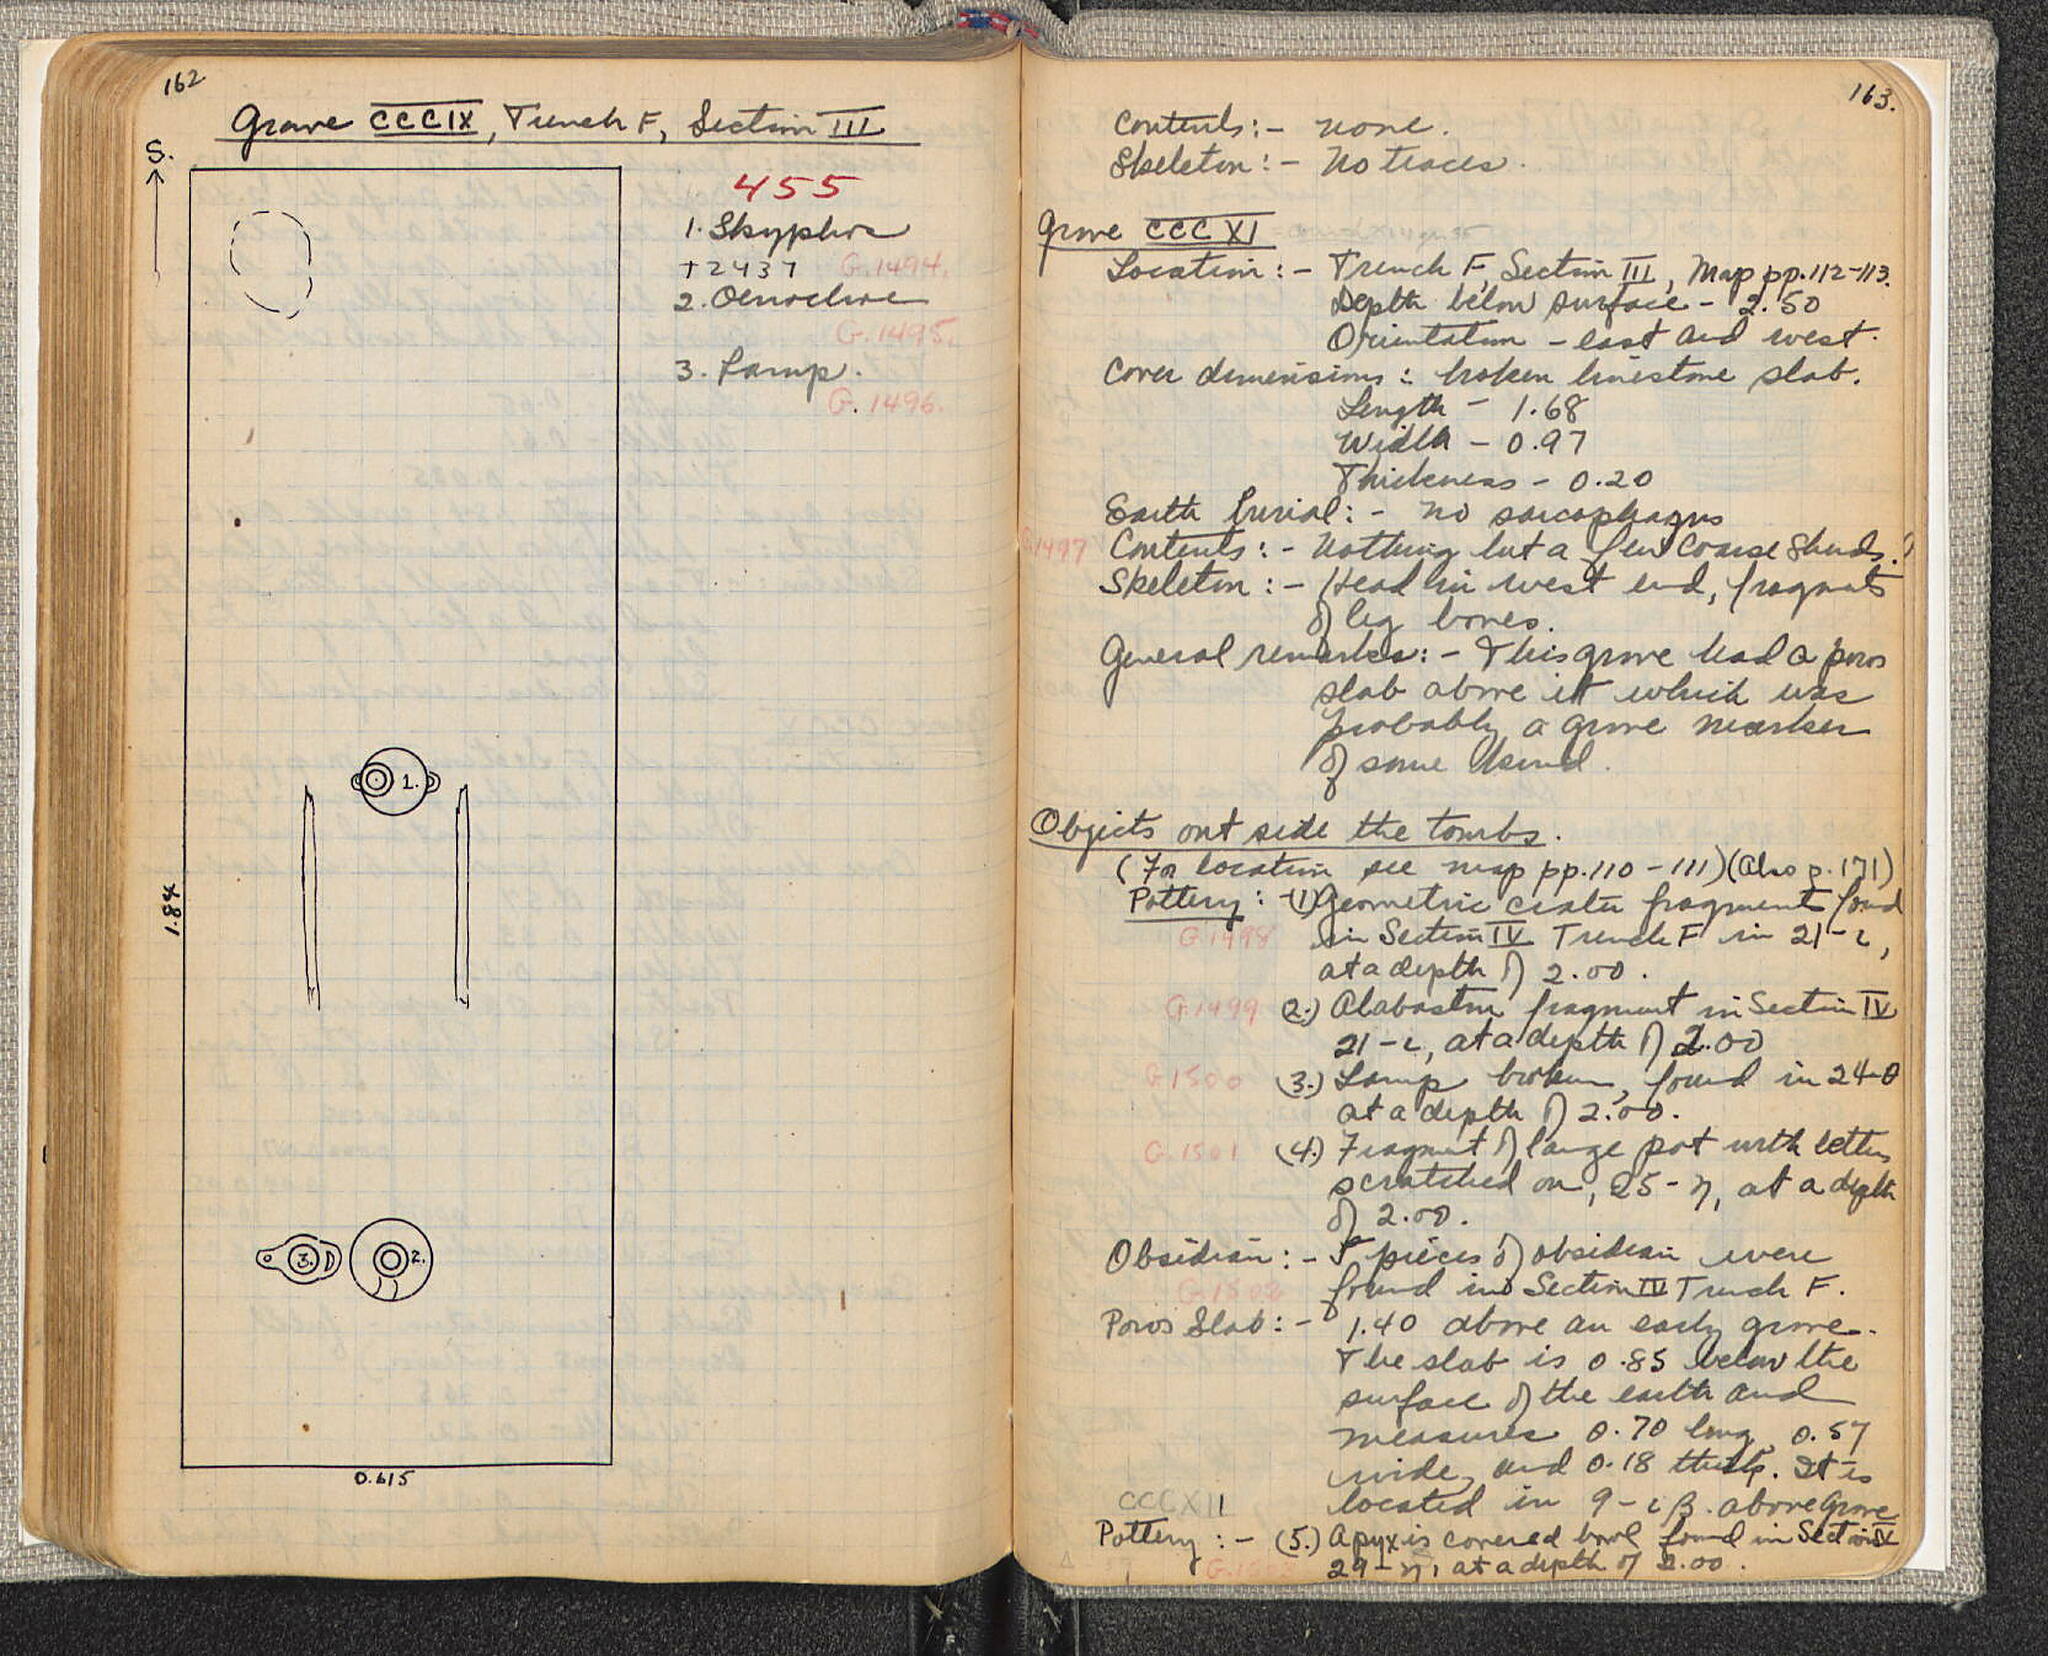 162
Grave CCCIX, Trench F, Section III
S.
455
1. Skyphos
T2437 G.1494.
2. Oenochoe
G.1495.
3. Lamp.
G.1496.
1.
1.84
3.
2.
0.615
163.
Contents:- None.
Skeleton:- No traces.
Grave CCCXI
Location:- Trench F, Section III, Map pp. 112-113.
Depth below surface - 2.50
Orientation - east and west.
Cover dimensions: broken limestone slab.
Length - 1.68
Width - 0.97
Thickness - 0.20
Earth burial:- No sarcophagus
G.1497 Contents:- Nothing but a few coarse sherds.
Skeleton:- Head in west end, fragments
of leg bones.
General remarks:- This grave had a poros
slab above it which was
probably a grave marker
of some kind.
Objects outside the tombs.
(For location see map pp. 110-111) (Also p. 171)
Pottery:- (1) Geometric crater fragment found
G.1498 in Section IV Trench F in 21-ι,
at a depth of 2.00.
G.1499 (2.) Alabastron fragment in Section IV
21-ι, at a depth of 2.00
G.1500 (3.) Lamp broken, found in 24-θ
at a depth of 2.00.
G.1501 (4.) Fragment of large pot with letters
scratched on, 25-η, at a depth
of 2.00.
Obsidian:- 5 pieces of obsidian were
G.1502 found in Section IV Trench F.
Poros Slab:- 1.40 above an early grave.
The slab is 0.85 below the
surface of the earth and
measures 0.70 long, 0.57
wide, and 0.18 thick. It is
located in 9-ιβ. above Grave
CCCXII
Pottery:- (5.) A pyxis covered bowl found in Section IV
G.1503 29-η, at a depth of 2.00.